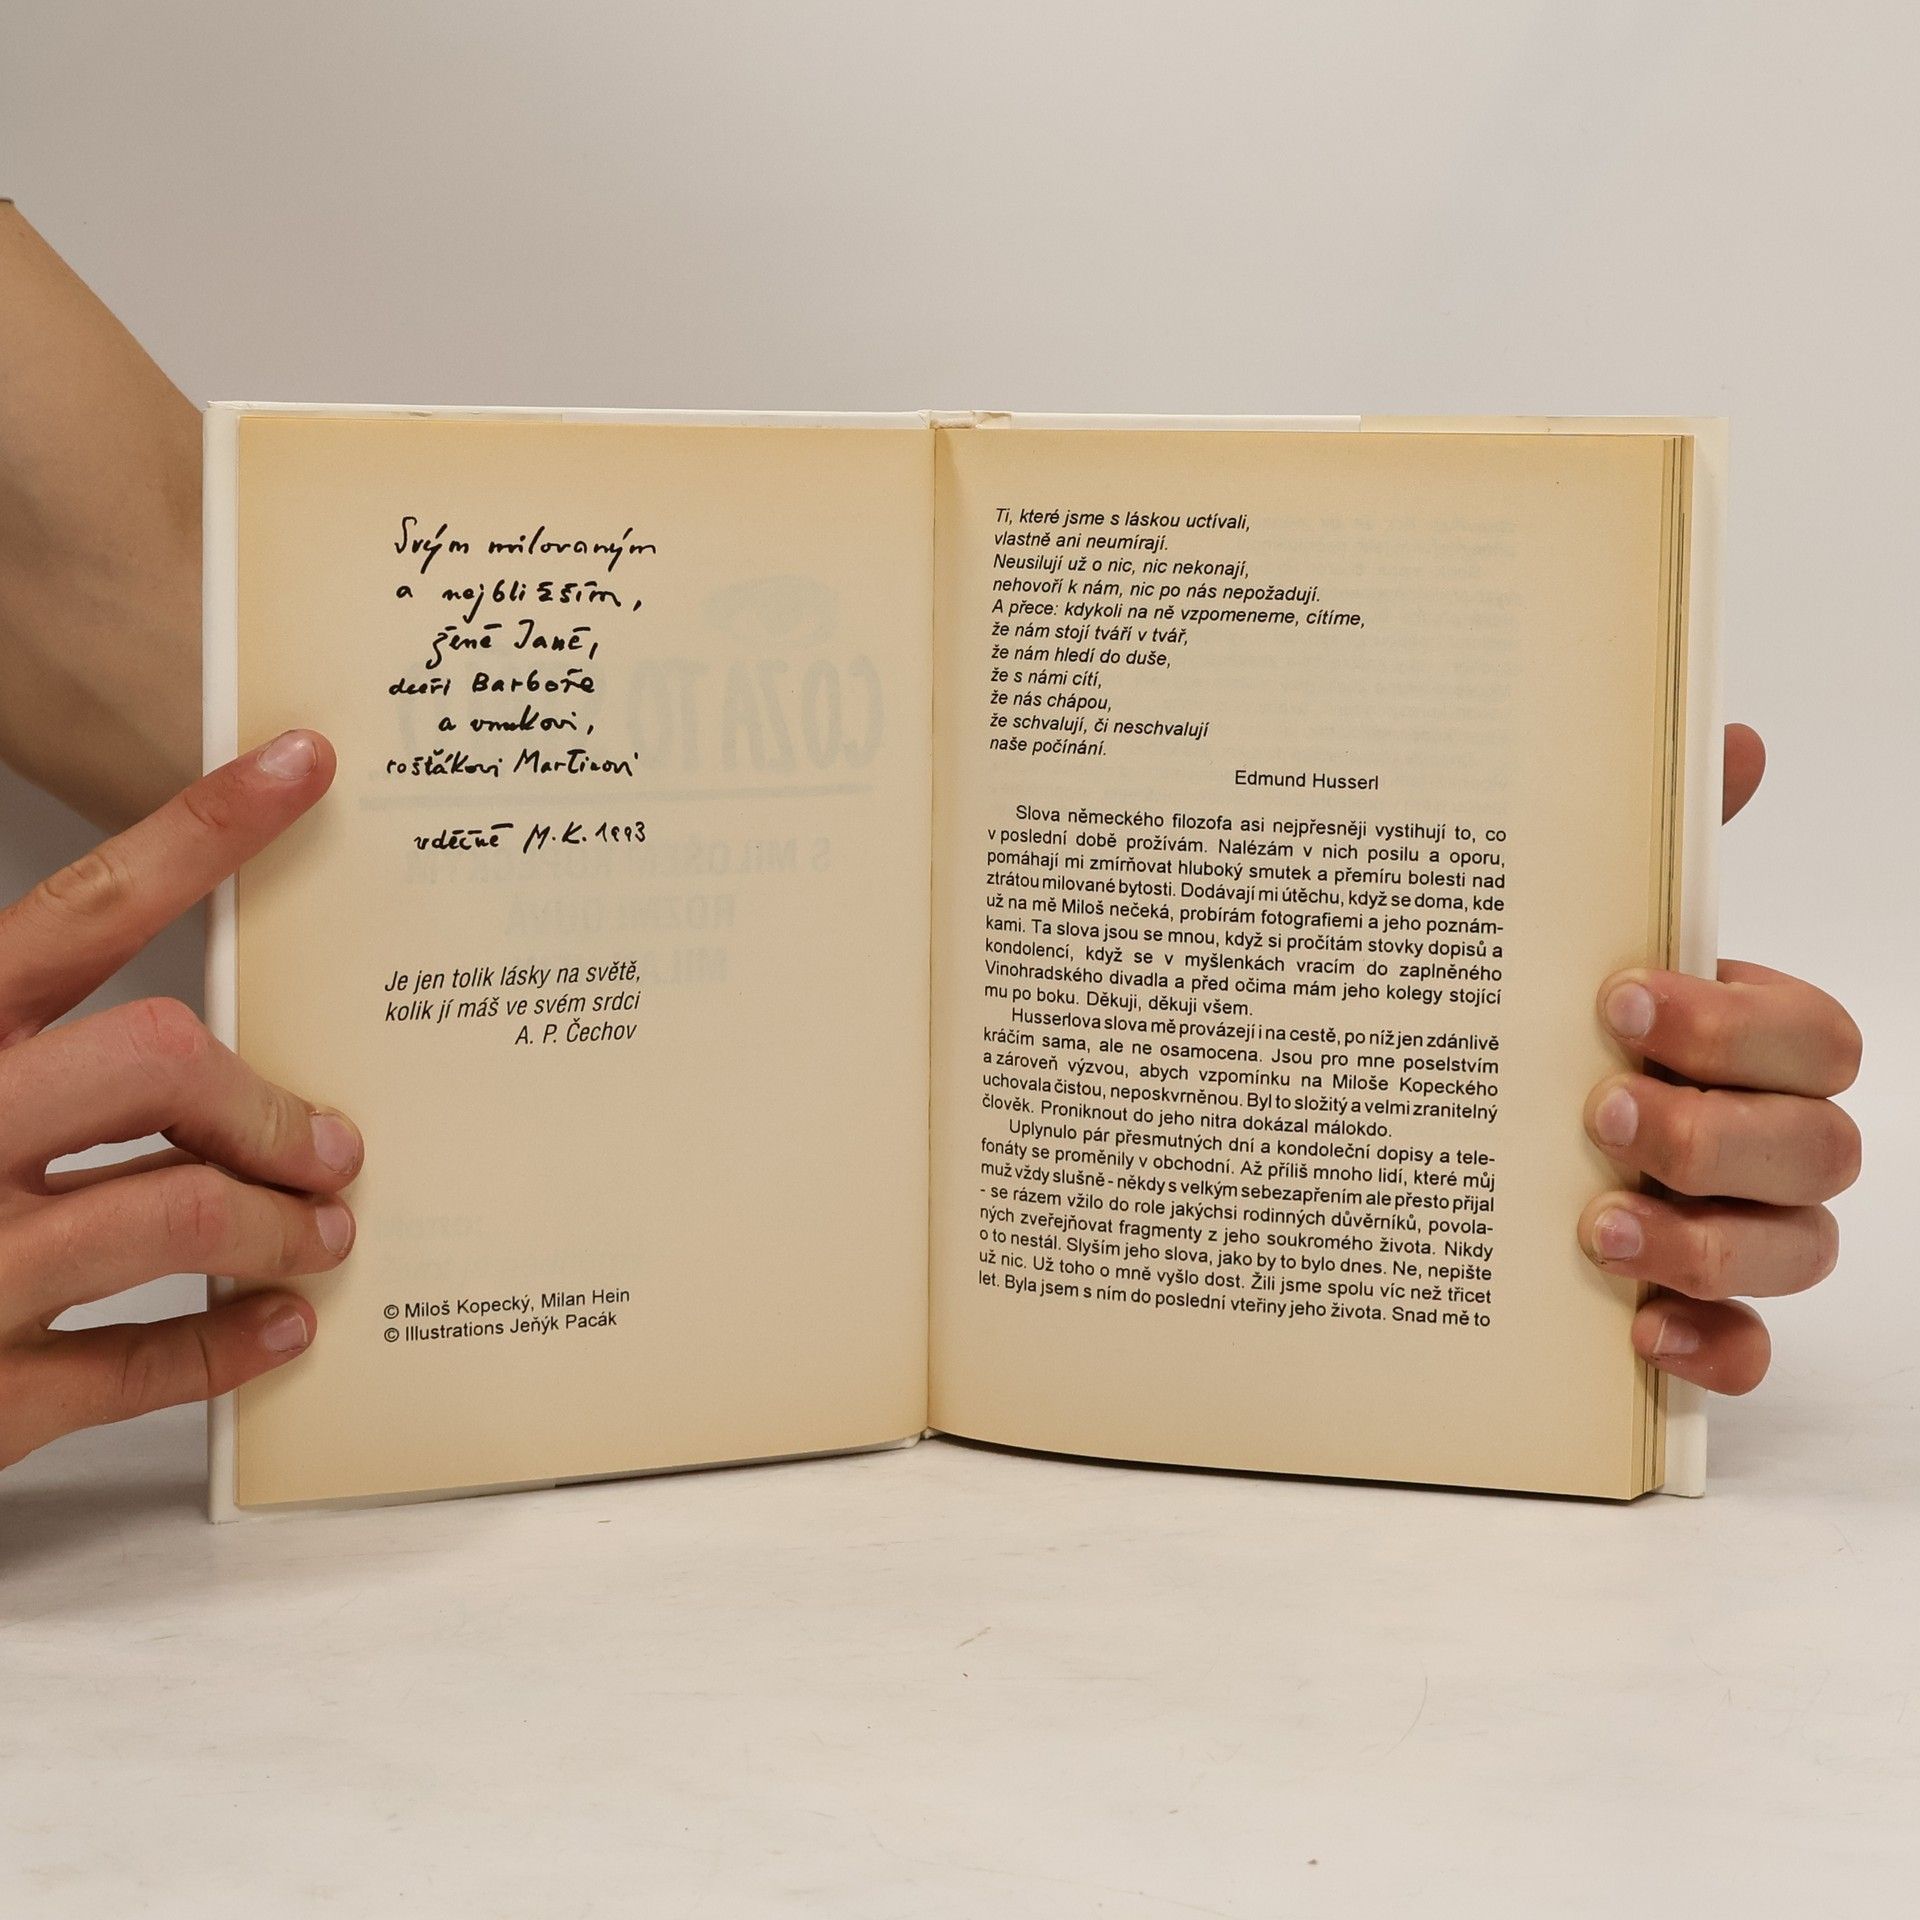 Svým milovaným
a nejbližším,
ženě Janě,
dceři Barboře
a vnukovi,
rošťákovi Martinovi
vděčně M.K. 1993
Je jen tolik lásky na světě,
kolik jí máš ve svém srdci
A. P. Čechov
© Miloš Kopecký, Milan Hein
© Illustrations Jeňýk Pacák
Ti, které jsme s láskou uctívali,
vlastně ani neumírají.
Neusilují už o nic, nic nekonají,
nehovoří k nám, nic po nás nepožadují.
A přece: kdykoli na ně vzpomeneme, cítíme,
že nám stojí tváří v tvář,
že nám hledí do duše,
že s námi cítí,
že nás chápou,
že schvalují, či neschvalují
naše počínání.
Edmund Husserl
Slova německého filozofa asi nejpřesněji vystihují to, co
v poslední době prožívám. Nalézám v nich posilu a oporu,
pomáhají mi zmírňovat hluboký smutek a přemíru bolesti nad
ztrátou milované bytosti. Dodávají mi útěchu, když se doma, kde
už na mě Miloš nečeká, probírám fotografiemi a jeho poznám-
kami. Ta slova jsou se mnou, když si pročítám stovky dopisů a
kondolencí, když se v myšlenkách vracím do zaplněného
Vinohradského divadla a před očima mám jeho kolegy stojící
mu po boku. Děkuji, děkuji všem.
Husserlova slova mě provázejí i na cestě, po níž jen zdánlivě
kráčím sama, ale ne osamocena. Jsou pro mne poselstvím
a zároveň výzvou, abych vzpomínku na Miloše Kopeckého
uchovala čistou, neposkvrněnou. Byl to složitý a velmi zranitelný
člověk. Proniknout do jeho nitra dokázal málokdo.
Uplynulo pár přesmutných dní a kondoleční dopisy a tele-
fonáty se proměnily v obchodní. Až příliš mnoho lidí, které můj
muž vždy slušně - někdy s velkým sebezapřením ale přesto přijal
- se rázem vžilo do role jakýchsi rodinných důvěrníků, povola-
ných zveřejňovat fragmenty z jeho soukromého života. Nikdy
o to nestál. Slyším jeho slova, jako by to bylo dnes. Ne, nepište
už nic. Už toho o mně vyšlo dost. Žili jsme spolu víc než třicet
let. Byla jsem s ním do poslední vteřiny jeho života. Snad mě to